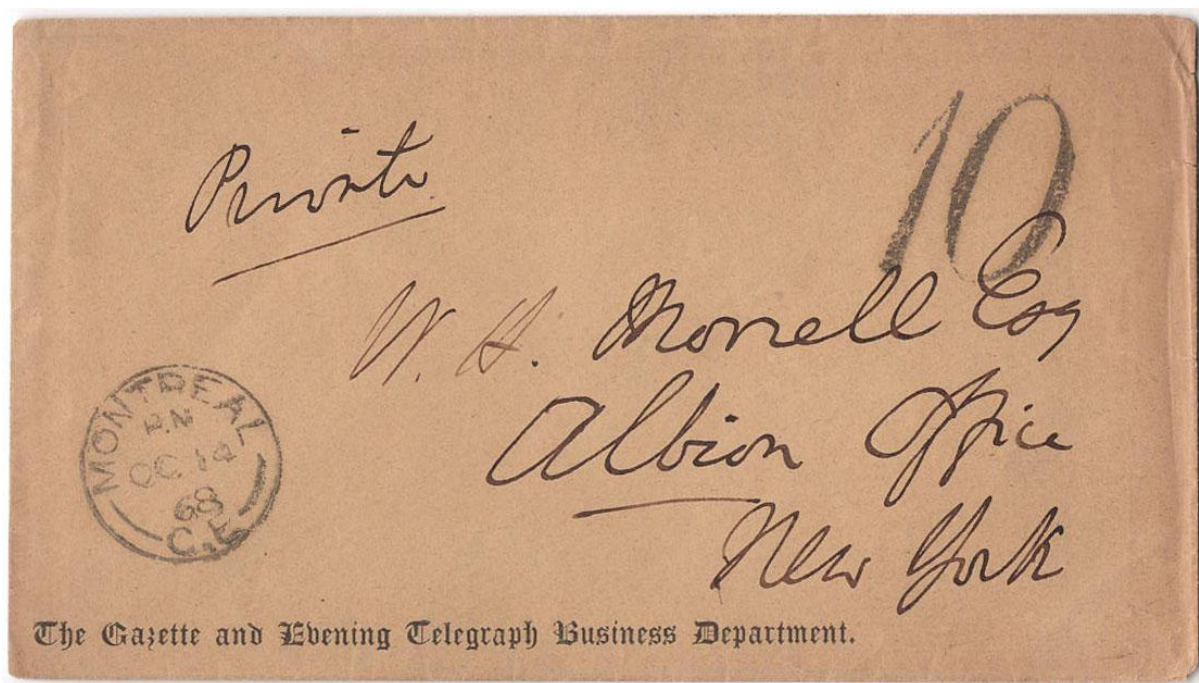 10
Private
W. H. Morrell Esq
Albion Office
New York
MONTREAL
P.M
OC 14
68
C.E
The Gazette and Evening Telegraph Business Department.